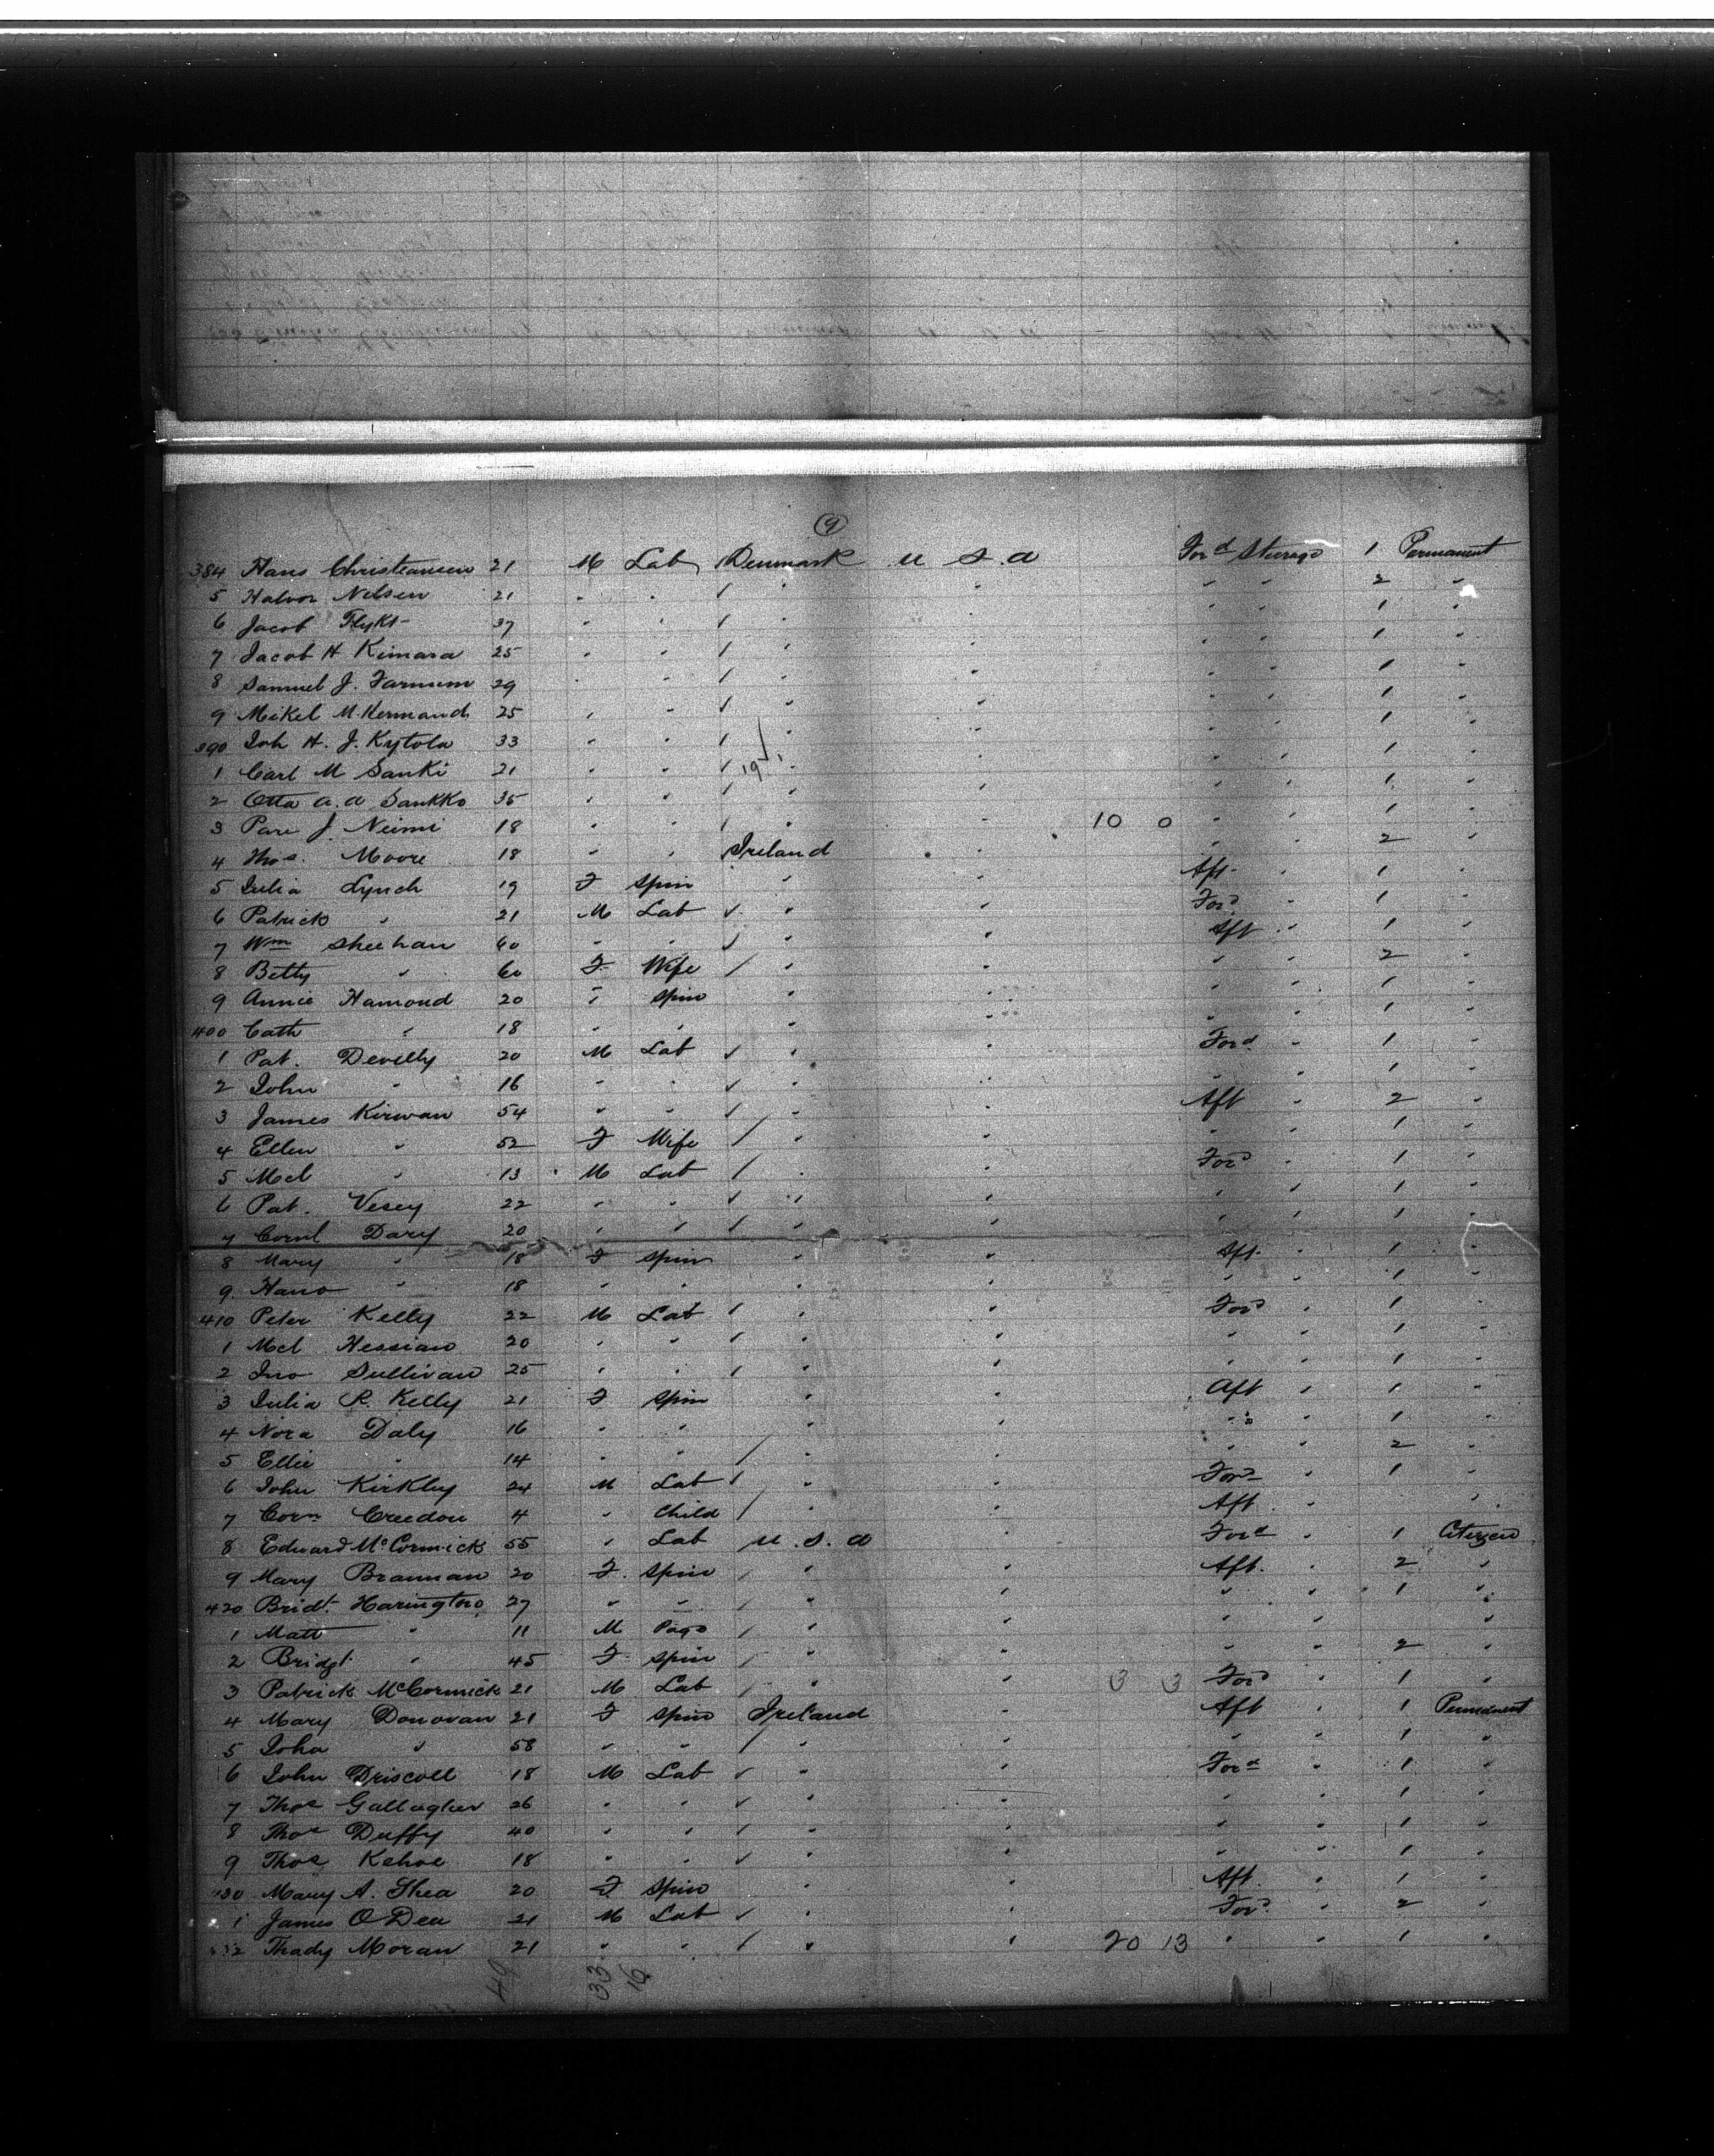 9
384 Hans Christiansen 21 M Lab Denmark U S. A Ford Steerage 1 Permanent
5 Halvor Nelsen 21 " " " " " " 2 "
6 Jacob Flykt 37 " " " " " " 1 "
7 Jacob H Kimara 25 " " " " " " 1 "
8 Samuel J. Farnum 29 " " " " " " 1 "
9 Mikel M. Hermand 25 " " " " " " 1 "
390 Joh H. J. Kytola 33 " " " " " " 1 "
1 Carl M Sanki 21 " " 19 " " " " 1 "
2 Otta A. A Sankko 35 " " " " " " 1 "
3 J. Niemi 18 " " " " 10 0 " " 1 "
4 Thos. Moore 18 " " Ireland " " " 2 "
5 Julia Lynch 19 F Spin " " Aft " 1 "
6 Patrick " 21 M Lab " " Ford " 1 "
7 Wm Sheehan 60 " " " " Aft " 1 "
8 Betty " 60 F Wife " " " " 2 "
9 Annie Hamond 20 F Spin " " " " 1 "
400 Cath " 18 " " " " " " 1 "
1 Pat. Devilly 20 M Lab " " Ford " 1 "
2 John " 16 " " " " " " 1 "
3 James Kirwan 54 " " " " Aft " 2 "
4 Ellen " 52 F Wife " " " " 1 "
5 Mcl " 13 M Lab " " Ford " 1 "
6 Pat. Vesey 22 " " " " " " 1 "
7 Cornl Dary 20 " " " " " " 1 "
8 Mary " 18 F Spin " " Aft " 1 "
9 Hano " 18 " " " " " " 1 "
410 Peter Kelly 22 M Lab " " Ford " 1 "
1 Mcl Hessian 20 " " " " " " 1 "
2 Jno Sullivan 25 " " " " " " 1 "
3 Julia R. Kelly 21 F Spin " " Aft " 1 "
4 Nora Daly 16 " " " " " " 1 "
5 Ellie " 14 " " " " " " 2 "
6 John Kirkley 24 M Lab " " Ford " 1 "
7 Corn Creedon 4 " Child " " Aft " " "
8 Edward McCormick 55 " Lab U. S. A " Ford " 1 Citizen
9 Mary Brannan 20 F. Spin " " Aft. " 2 "
420 Bridt. Harington 27 " " " " " " 1 "
1 Matt " 11 M " " " " "
2 Bridgt. " 45 F Spin " " " " 2 "
3 Patrick McCormick 21 M Lab " " 3 Ford " 1 "
4 Mary Donovan 21 F Spin Ireland " Aft " 1 Permanent
5 Joha " 58 " " " " " " 1 "
6 John Driscoll 18 M Lab " " Ford " 1 "
7 Thos Gallagher 26 " " " " " " 1 "
8 Thos Duffy 40 " " " " " " 1 "
9 Thos Kehoe 18 " " " " " " 1 "
430 Mary A. Shea 20 F Spin " " Aft. " 1 "
1 James O Dea 21 M Lab " " Ford " 2 "
432 Thady Moran 21 " " " " 20 13 " " 1 "
49 33 16